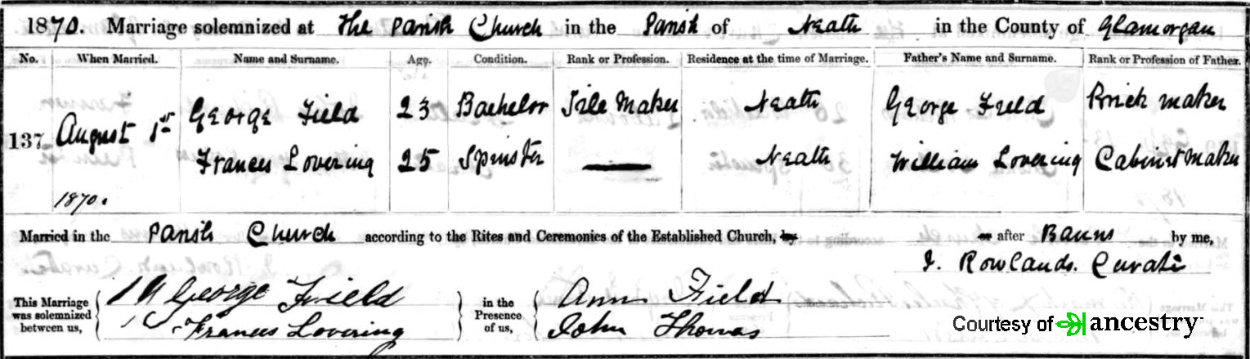 1870. Marriage solemnized at The Parish Church in the Parish of Neath in the County of Glamorgan
No. When Married. Name and Surname. Age. Condition. Rank or Profession. Residence at the time of Marriage. Father's Name and Surname. Rank or Profession of Father.
137 August 1st George Field 23 Bachelor Tile Maker Neath George Field Brick maker
Frances Lovering 25 Spinster — Neath William Lovering Cabinet Maker
1870.
Married in the Parish Church according to the Rites and Ceremonies of the Established Church, by or after Banns by me,
J. Rowlands. Curate
This Marriage was solemnized between us, George Field in the Presence of us, Ann Field
Frances Lovering John Thomas
Courtesy of ancestry